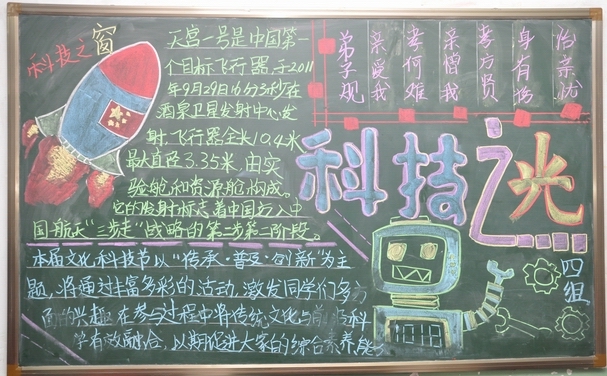 科技之窗
天宫一号是中国第一
个目标飞行器于2011
年9月29日16分3秒在
酒泉卫星发射中心发
射,飞行器全长10.4米
最大直径3.35米,由实
验舱和资源舱构成。
它的发射标志着中国方入中
国航天"三步走"战略的第二步第二阶段。
弟子规
亲爱我
孝何难
亲憎我
孝方贤
身有伤
怡亲忧
科技之光
本届文化科技节以"传承·普及·创新"为主
题,将通过丰富多彩的活动,激发同学们多方
面的兴趣,在参与过程中将传统文化与前沿科
学有效融合,以期促进大家的综合素养能
四组